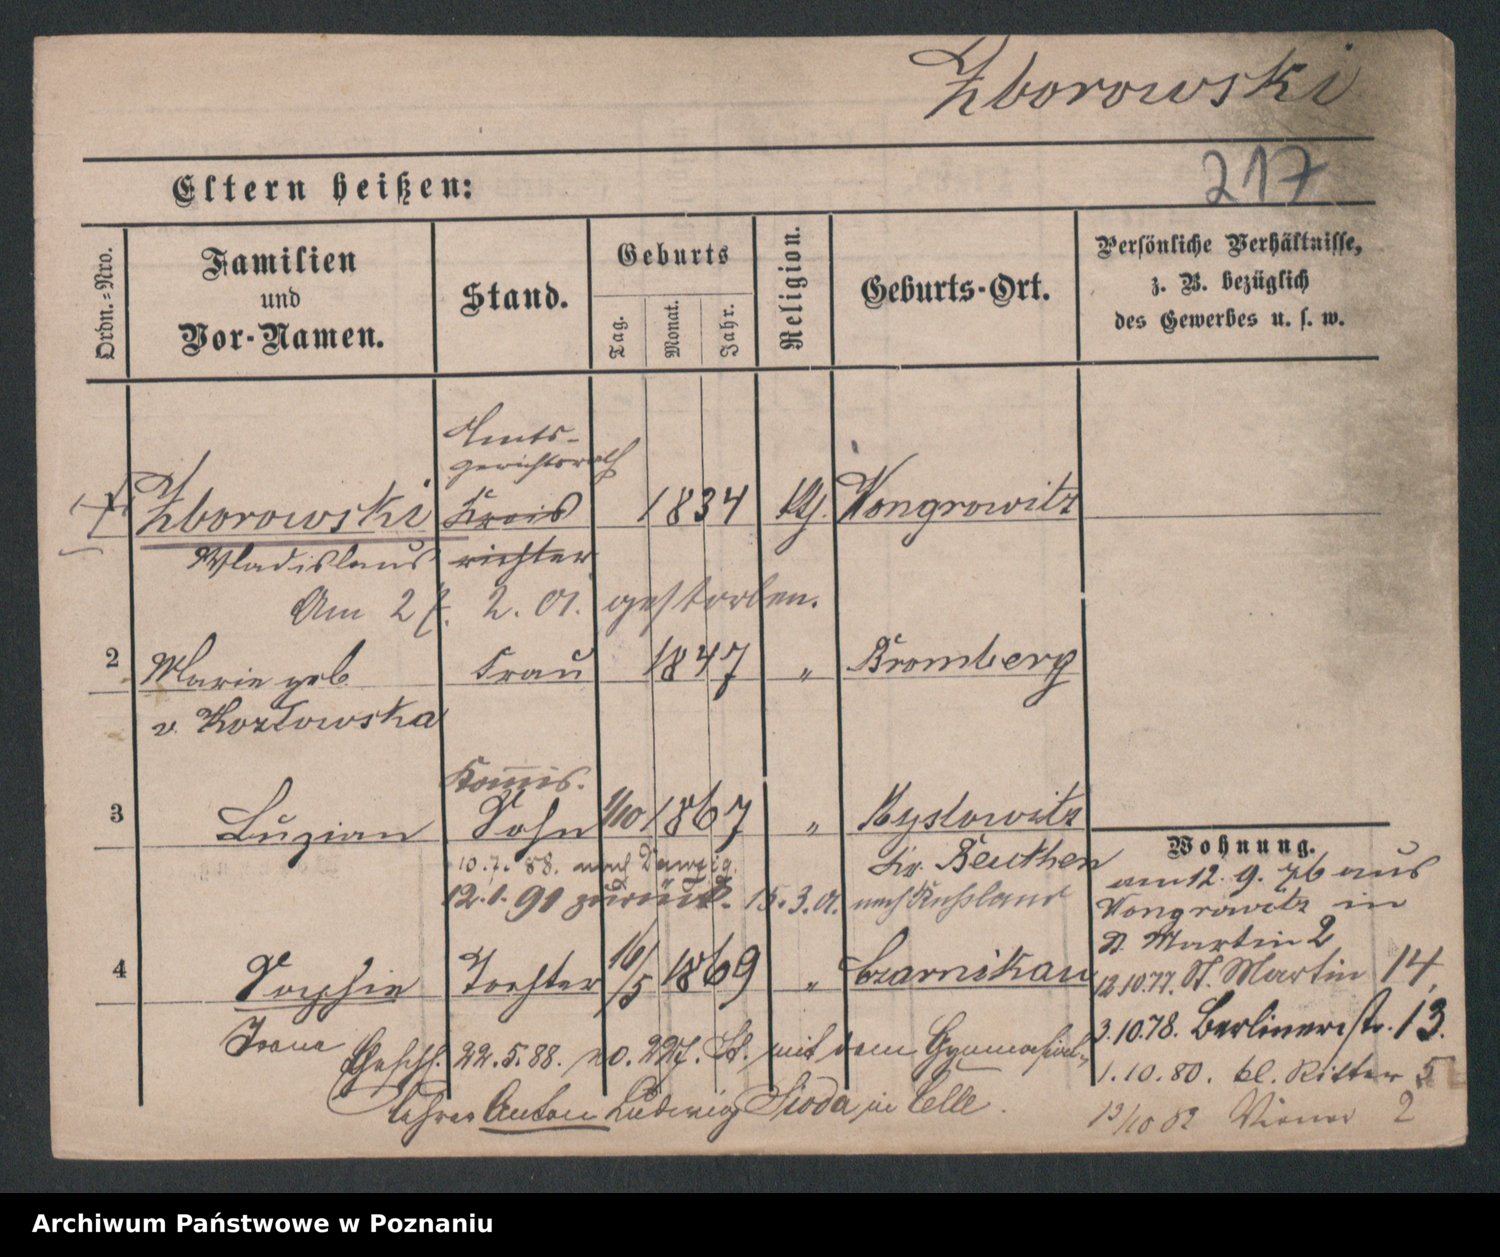 Zborowski
217
Eltern heißen:
Ordn.=Nro.
Familien
und
Vor-Namen.
Stand.
Geburts
Tag.
Monat.
Jahr.
Religion.
Geburts-Ort.
Persönliche Verhältnisse,
z. B. bezüglich
des Gewerbes u. s. w.
Amts-
gerichtsrath
1 Zborowski Kreis 1834 kth. Wongrowitz
Wladislaus richter
Am 27. 2. 01. gestorben.
2 Marie geb Frau 1847 " Bromberg
v. Kozlowska
Kommis.
3 Luzian Sohn 1/10 1867 " Myslowitz
Kr. Beuthen
10.7. 88. nach Danzig.
12.1.91 zurück. 15.3.01. nach Russland
4 Sophie Tochter 16/5 1869 " Czarnikau
Gesch. 22.5.88. no. 227. St. mit dem Gymnasial-
lehrer Anton Ludwig Sioda, in Celle.
Wohnung.
am 12. 9. 76 aus
Wongrowitz in
St. Martin 2
12.10.77. St. Martin 14,
3.10.78. Berlinerstr. 13.
1.10.80. kl. Ritter 5
13/10 82 Wiener 2